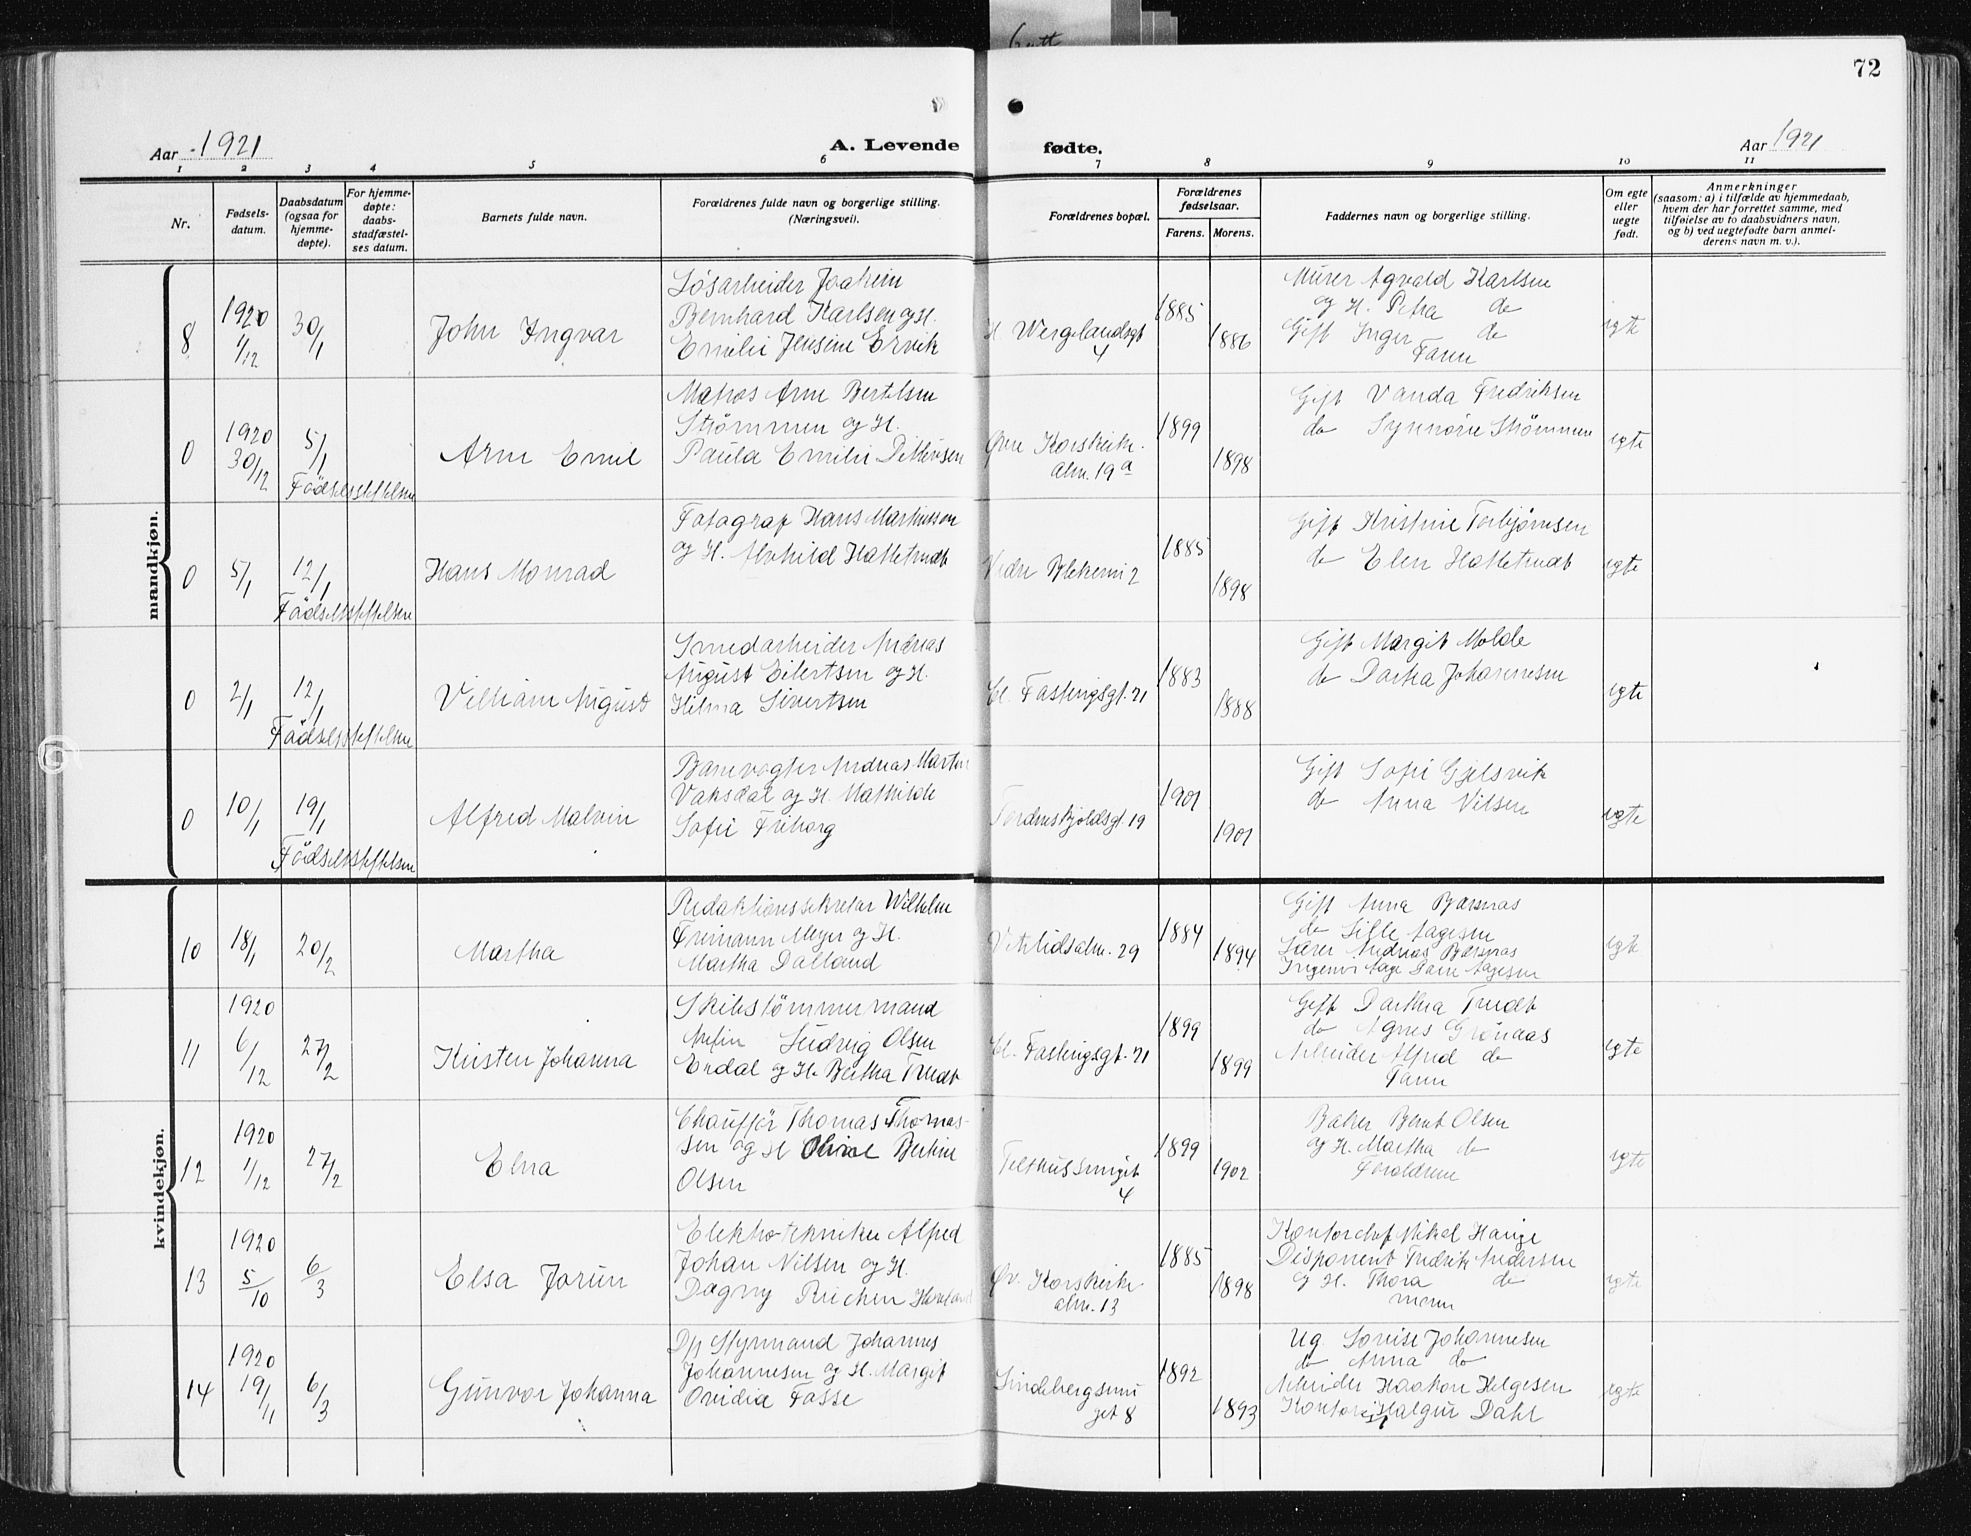 72
Aar 1921
A. Levende
fødte.
Aar 1921
1 2 3 4 5 6 7 8 9 10 11
Nr.
Fødselsdatum.
Daabsdatum (ogsaa for hjemmedøpte).
For hjemmedøpte: daabsstadfæstelses datum.
Barnets fulde navn.
Forældrenes fulde navn og borgerlige stilling. (Næringsvei).
Forældrenes bopæl.
Forældrenes fødselsaar.
Farens. Morens.
Faddernes navn og borgerlige stilling.
Om egte eller uegte født.
Anmerkninger
(saasom: a) i tilfælde av hjemmedaab,
hvem der har forrettet samme, med
tilføielse av to daabsvidners navn,
og b) ved uegtefødte barn anmelderens navn m. v.).
mandkjøn.
8
1920
1/12
30/1
John Ingvar
Løsarbeider Joakim
Bernhard Karlsen og H.
Emilie Jensine Ervik
H Wergelandsgt
4
1885
1886
Murer Agvald Karlsen
og H. Petra do
Gift Inger do
Faren
egte
0
1920
30/12
5/1
Fødselsstiftelsen
Arne Emil
Matros Arne Bertelsen
Strømmen og H.
Paula Emilie Ditlevsen
Øvre Korskirkealm. 19a
1899
1898
Gift Vanda Fredriksen
do Synnøve Strømmen
egte
0
5/1
12/1
Fødselsstiftelsen
Hans Monrad
Fotograf Hans Martinsen
og H. Alvhild Hattetredt
Vedre Blekevei 2
1885
1898
Gift Kristine Torbjørnsen
do Elen Hattetredt
egte
0
2/1
12/1
Fødselsstiftelsen
Villiam August
Smedarbeider Andreas
August Eilertsen og H.
Hilma Sivertsen
Cl. Fastingsgt. 21
1883
1888
Gift Margit Molde
do Dortea Johannesen
egte
0
10/1
19/1
Fødselsstiftelsen
Alfred Malvin
Banevogter Andreas Martin
Vaksdal og H. Mathilde
Sofie Friborg
Tordenskjoldsgt. 19
1901
1901
Gift Sofie Gjelsvik
do Anna Nilsen
egte
kvindekjøn.
10
18/1
20/2
Martha
Redaktionssekretær Wilhelm
Freimann Meyer og H.
Martha Dalland
Vetrlidsalm. 29
1884
1894
Gift Anna Barsnæs
do Lille Aagesen
Lærer Andreas Barsnæs
Ingeniør Aage Dam Aagesen
egte
11
1920
6/12
27/2
Kirsten Johanna
Skibstømmermand
Arfin Ludvig Olsen
Erdal og H. Bertha Tredt
Cl. Fastingsgt. 21
1899
1899
Gift Darthea Tredt
do Agnes Grønaas
Arbeider Alfred do
Faren
egte
12
1920
1/12
27/2
Elna
Chauffør Thomas Thomassen og H Oline Bertine
Olsen
Telthussmuget
4
1899
1902
Baker Bernt Olsen
og H. Martha do
Forældrene
egte
13
1920
5/10
6/3
Elsa Jorun
Elektrotekniker Alfred
Johan Nilsen og H.
Dagny
Øv. Korskirkealm. 13
1885
1898
Kontorchef Mikal Hauge
Disponent Fredrik Andersen
og H. Thora do
moren
egte
14
1920
19/11
6/3
Gunvor Johanna
Dp Styrmand Johannes
Johannesen og H. Margit
Ovidia Fosse
Lindebergsmuget 8
1892
1893
Ug. Lovise Johannesen
do Anna do
Arbeider Haakon Helgesen
Kontorist Halgur Dahl
egte